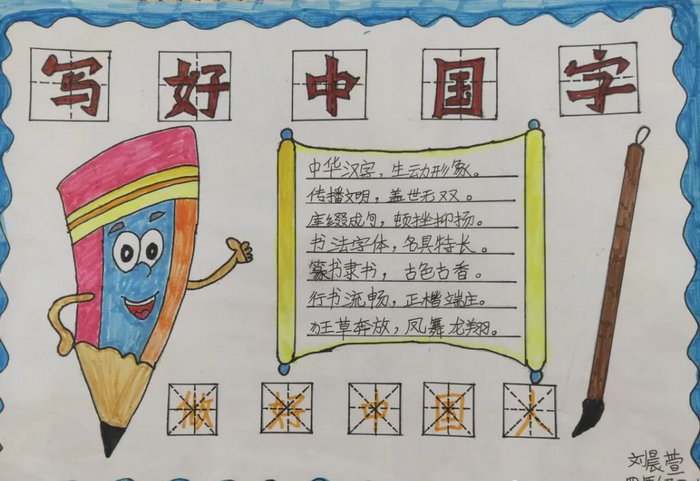 写好中国字
中华汉字，生动形象。
传播文明，盖世无双。
连缀成句，顿挫抑扬。
书法字体，各具特长。
篆书隶书，古色古香。
行书流畅，正楷端庄。
狂草奔放，凤舞龙翔。
做好中国人
刘晨萱